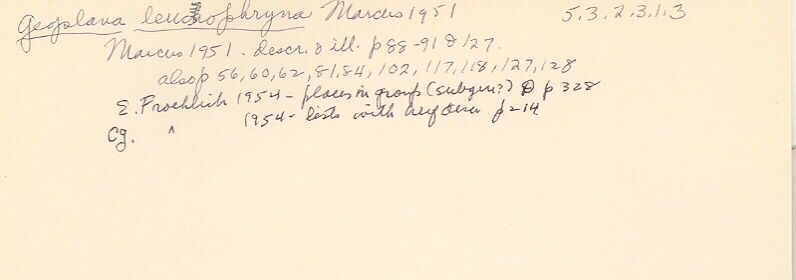 Geoplana leucophryna Marcus 1951 5.3.2.3.1.3
Marcus 1951 - descr. & ill. p 88-91 & 127.
also p 56, 60, 62, 81, 84, 102, 117, 118, 127, 128
E. Froehlich 1954 - places in group (subgen?) D p 328
Cg. ^ 1954 - lists with key p 214